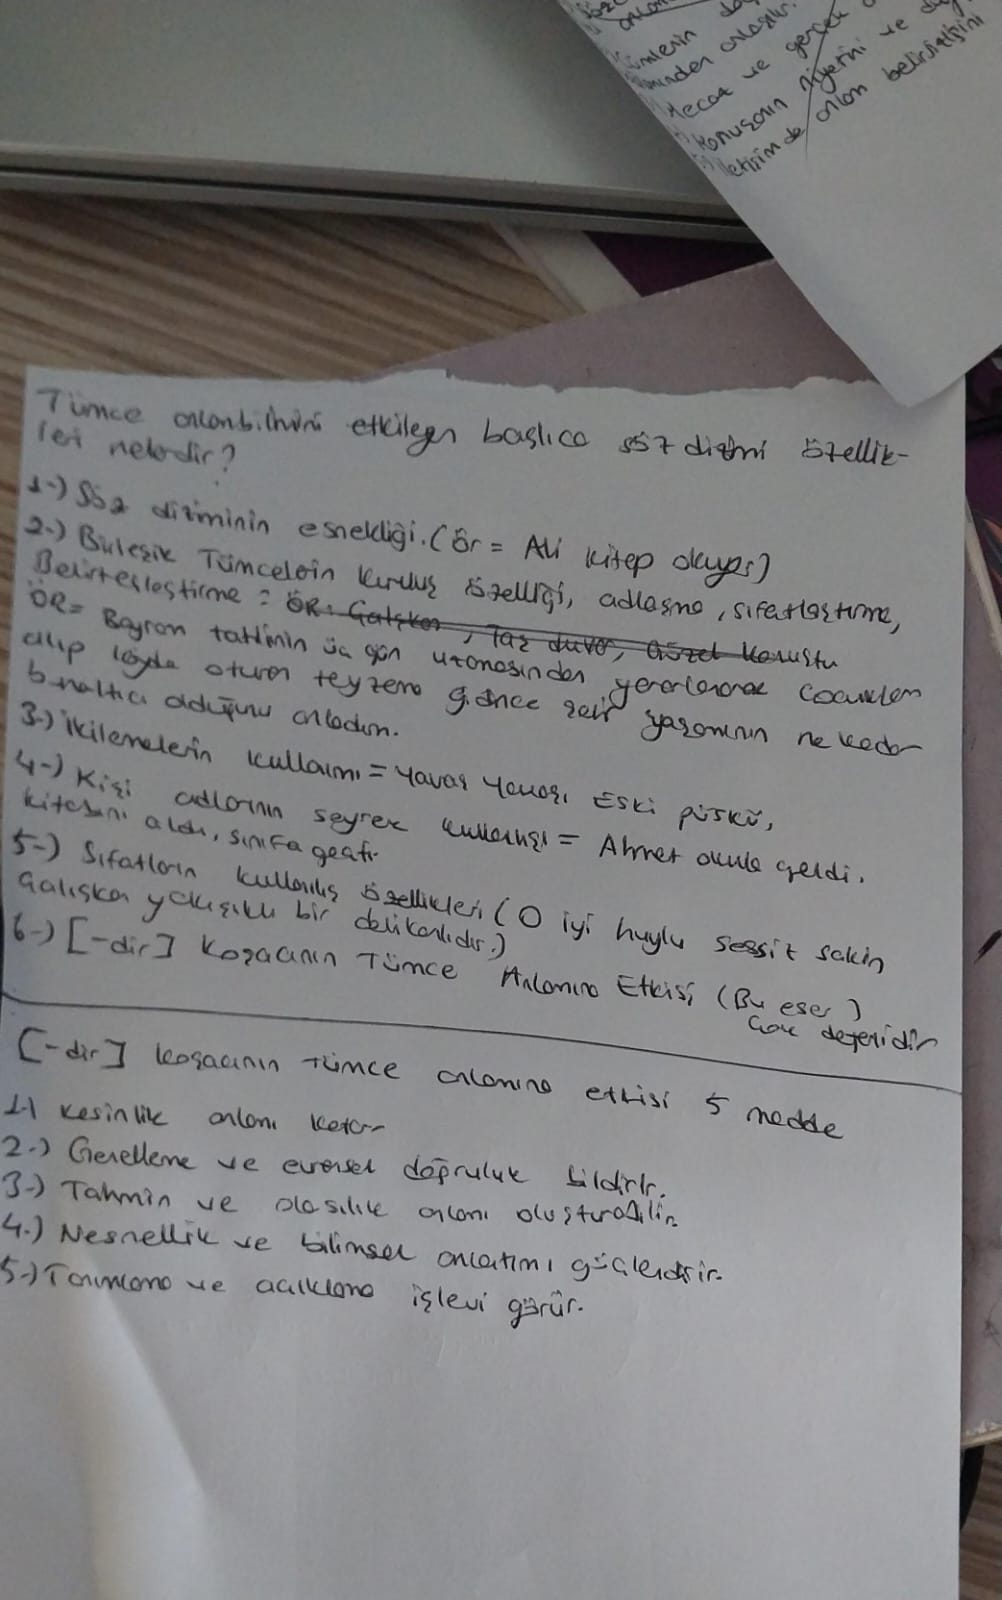 anlamından anlaşılır.
Mecaz ve gerçek
Konuşanın niyetini ve
İletişimde anlam belirsizliğini
Tümce anlambilimini etkileyen başlıca söz dizimi özellik-
leri nelerdir?
1-) Söz diziminin esnekliği. (Ör = Ali kitap okuyor)
2-) Birleşik Tümcelerin kuruluş özelliği, adlaşma, sıfatlaştırma,
Belirteçleştirme = ÖR: Çalışkan, Taş duvar, Güzel konuştu
ÖR= Bayram tatilinin üç gün uzamasından yararlanarak çocukları
alıp köyde oturan teyzeme gidince şehir yaşamının ne kadar
bunaltıcı olduğunu anladım.
3-) İkilemelerin kullanımı = Yavaş yavaş, Eski püskü,
4-) Kişi adlarının seyrek kullanılışı = Ahmet okula geldi.
kitabını aldı, sınıfa geçti.
5-) Sıfatların kullanılış özellikleri (O iyi huylu sessiz sakin
çalışkan yakışıklı bir delikanlıdır.)
6-) [-dir] Koşacının Tümce Anlamına Etkisi (Bu eser )
çok değerlidir
[-dir] koşacının tümce anlamına etkisi 5 madde
1-) kesinlik anlamı katar
2-) Genelleme ve evrensel doğruluk bildirir.
3-) Tahmin ve olasılık anlamı oluşturabilir
4-) Nesnellik ve bilimsel anlatımı güçlendirir.
5-) Tanımlama ve açıklama işlevi görür.